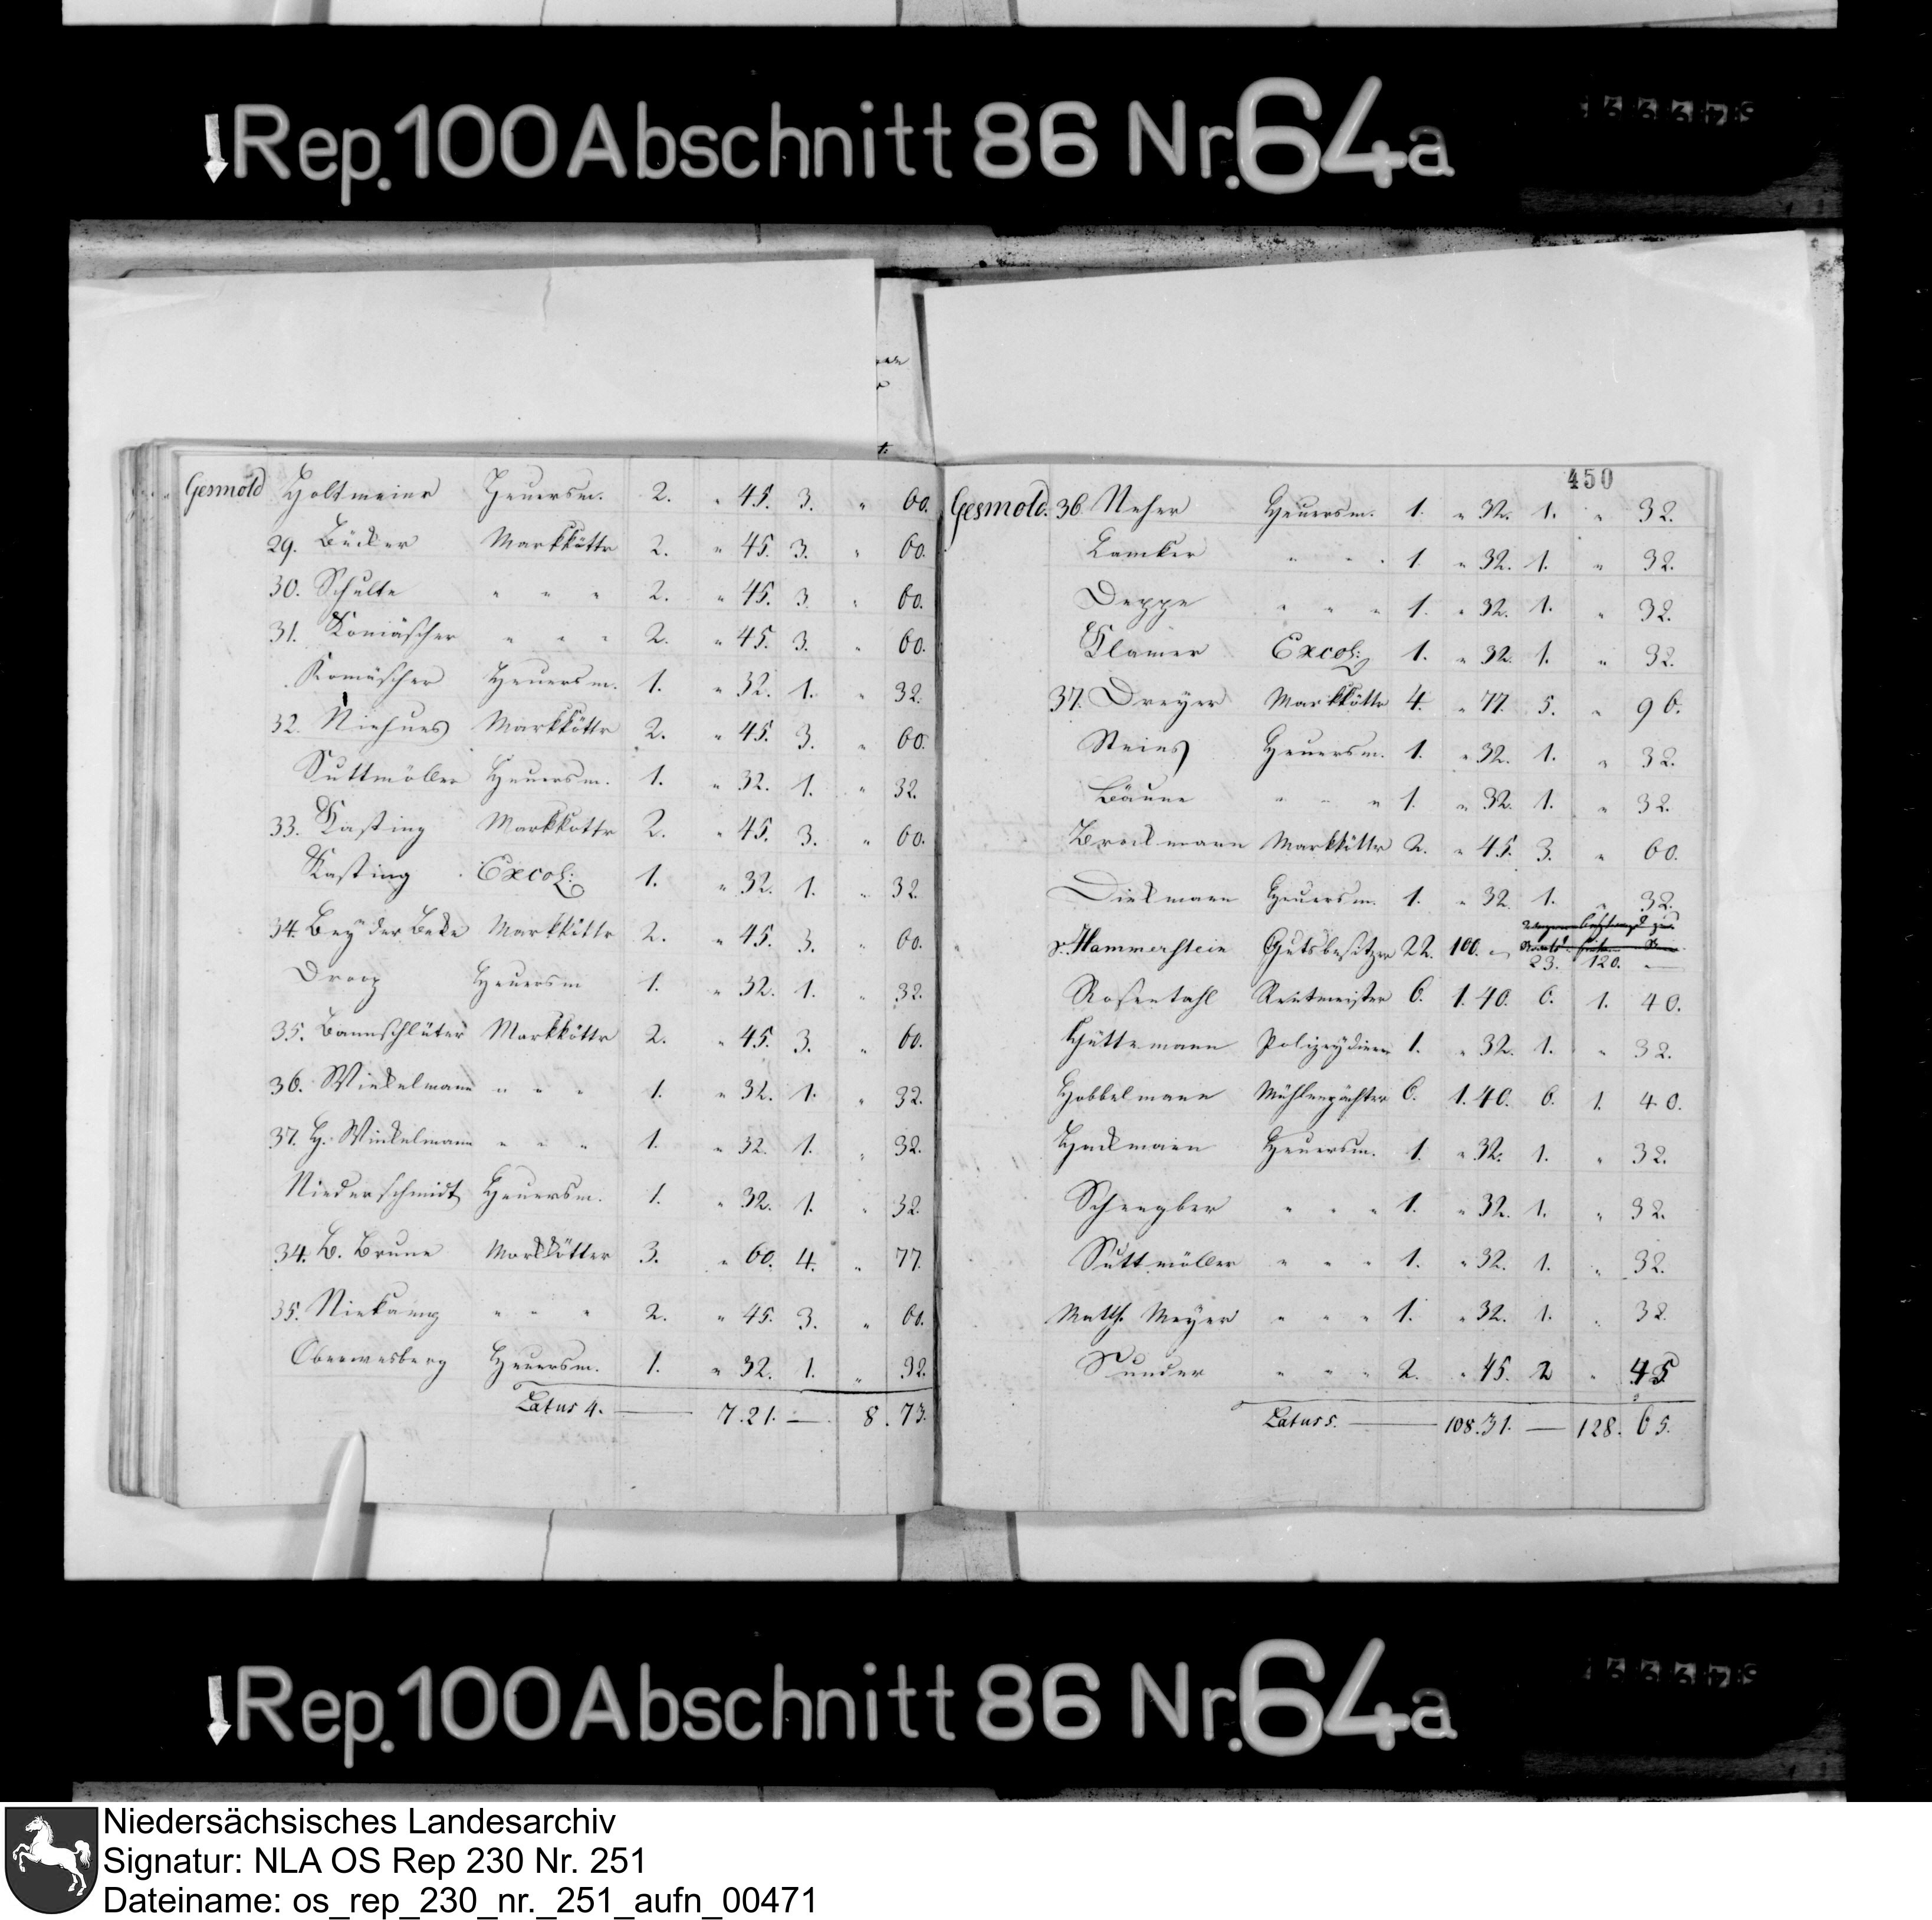 Rep. 100 Abschnitt 86 Nr. 64a
Gesmold Holtmeier Heuersm. 2. " 45. 3. " 60.
29. Bücker Markkötter 2. " 45. 3. " 60.
30. Schulte " " " 2. " 45. 3. " 60.
31. Komäscher " " " 2. " 45. 3. " 60.
Komäscher Heuersm. 1. " 32. 1. " 32.
32. Niehues Markkötter 2. " 45. 3. " 60.
Suttmöller Heuersm. 1. " 32. 1. " 32.
33. Kasting Markkotter 2. " 45. 3. " 60.
Kasting Excol: 1. " 32. 1. " 32.
34. Bey der Beke Markkötter 2. " 45. 3. " 60.
Droop Heuersm 1. " 32. 1. " 32.
35. Bannschlüter Markkötter 2. " 45. 3. " 60.
36. Winkelmann " " " 1. " 32. 1. " 32.
37. H. Winkelmann " " " 1. " 32. 1. " 32.
Niederschmidt Heuersm. 1. " 32. 1. " 32.
34. B. Brune Markkötter 3. " 60. 4. " 77.
35. Niekamp " " " 2. " 45. 3. " 60.
Oberwesberg Heuersm. 1. " 32. 1. " 32.
Latus 4. — 7. 21. — 8. 73.
450
Gesmold. 36. Neher Heuersm. 1. " 32. 1. " 32.
Lamker " " " 1. " 32. 1. " 32.
Deppe " " " 1. " 32. 1. " 32.
Klamer Excol: 1. " 32. 1. " 32.
37. Dreyer Markkötter 4. " 77. 5. " 96.
Steins Heuersm. 1. " 32. 1. " 32.
Bäune " " " 1. " 32. 1. " 32.
Brockmann Markkötter 2. " 45. 3. " 60.
Diekmann Heuersm. 1. " 32. 1. " 32.
v. Hammerstein Gutsbesitzer 22. 100. " 23. 120. —
Rosentahl Rentmeister 6. 1. 40. 6. 1. 40.
Hüttemann Polizeydiener 1. " 32. 1. " 32.
Hobbelmann Mühlenpächter 6. 1. 40. 6. 1. 40.
Heuersm. 1. " 32. 1. " 32.
Schengber " " " 1. " 32. 1. " 32.
Suttmöller " " " 1. " 32. 1. " 32.
Matth. Meyer " " " 1. " 32. 1. " 32.
Sunder " " " 2. " 45. 2 " 45
Latus 5. — 108. 31. — 128. 65.
Rep. 100 Abschnitt 86 Nr. 64a
Niedersächsisches Landesarchiv
Signatur: NLA OS Rep 230 Nr. 251
Dateiname: os_rep_230_nr._251_aufn_00471